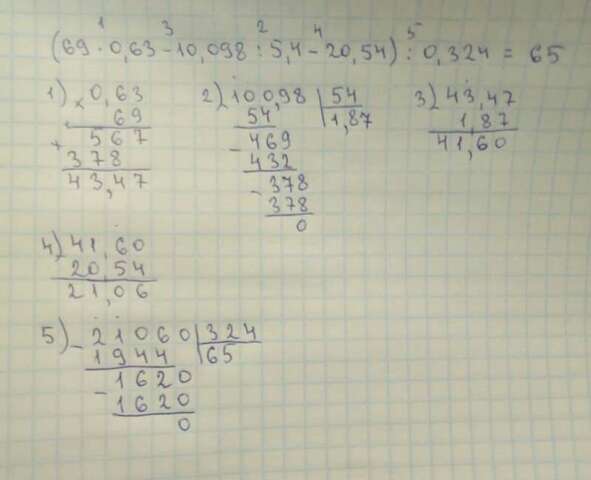 1 3 2 4 5
(69 · 0,63 - 10,098 : 5,4 - 20,54) : 0,324 = 65
1) × 0,63
69
+ 567
378
43,47
2) 10,098 | 54
54 1,87
- 469
432
- 378
378
0
3) 43,47
1,87
41,60
4) 41,60
20,54
21,06
5) - 21060 | 324
1944 65
- 1620
1620
0